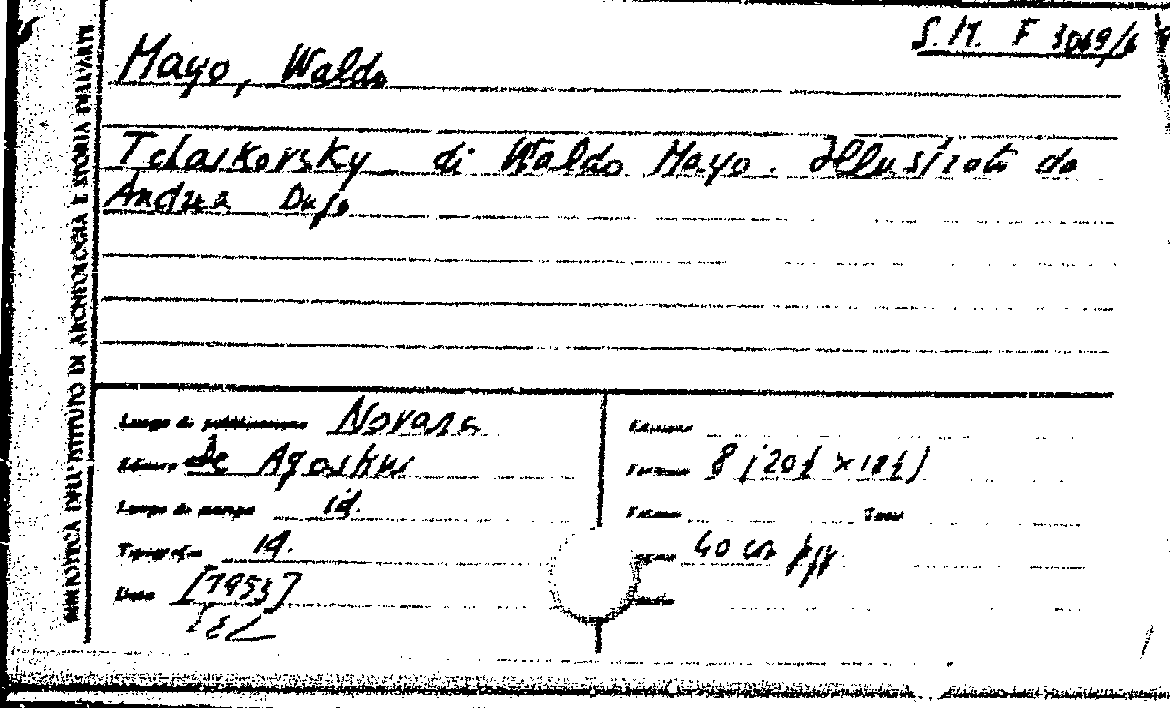 S. M. F 3069/6
Mayo, Waldo
Tchaikovsky di Waldo Mayo. Illustrato da
Andrea Dufo
BIBLIOTECA DELL'ISTITUTO DI ARCHEOLOGIA E STORIA DELL'ARTE
Luogo di pubblicazione Novara
Editore de Agostini
Luogo di stampa id.
Tipografia id.
Data [1953]
Edizione
Formato 8 (20½ × 18½)
Volumi Tomi
Pagine 40 cn